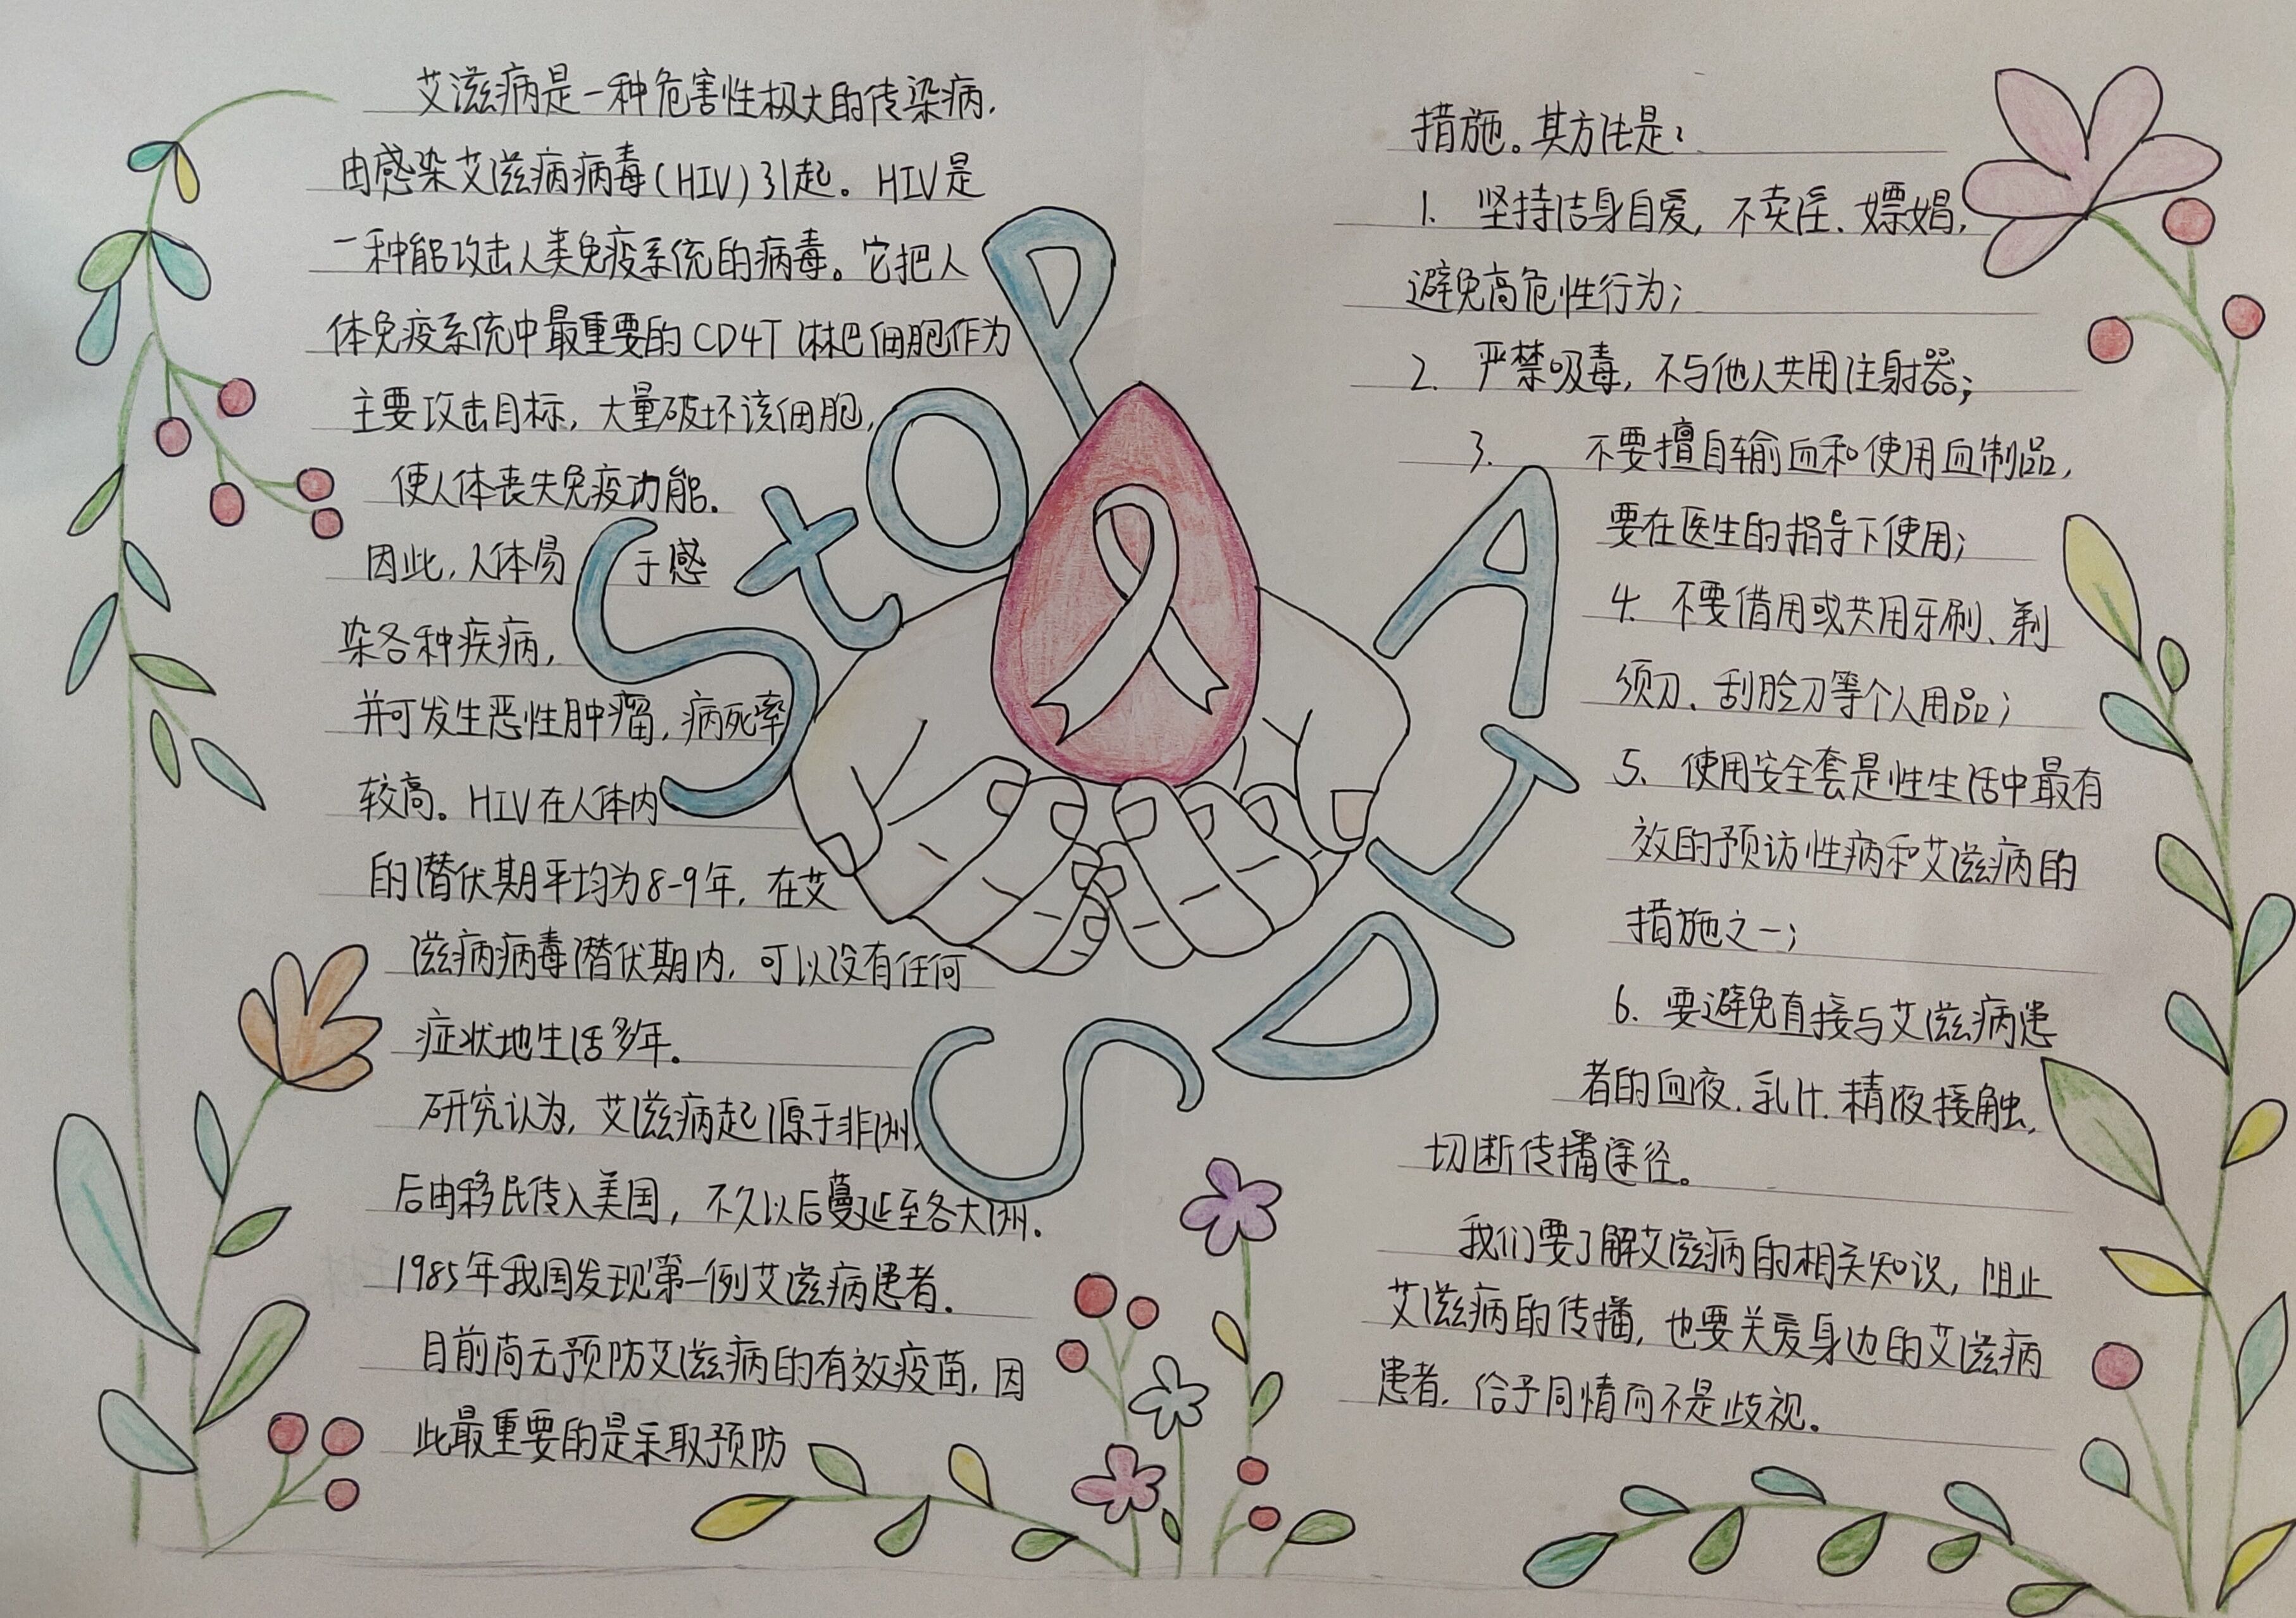 艾滋病是一种危害性极大的传染病,
由感染艾滋病病毒(HIV)引起。HIV是
一种能攻击人类免疫系统的病毒。它把人
体免疫系统中最重要的CD4T淋巴细胞作为
主要攻击目标,大量破坏该细胞,
使人体丧失免疫功能.
因此,人体易于感
染各种疾病,
并可发生恶性肿瘤,病死率
较高。HIV在人体内
的潜伏期平均为8-9年,在艾
滋病病毒潜伏期内,可以没有任何
症状地生活多年。
研究认为,艾滋病起源于非洲,
后由移民传入美国,不久以后蔓延至各大洲.
1985年我国发现第一例艾滋病患者.
目前尚无预防艾滋病的有效疫苗,因
此最重要的是采取预防
Stop
AIDS
措施。其方法是:
1. 坚持洁身自爱,不卖淫、嫖娼,
避免高危性行为;
2. 严禁吸毒,不与他人共用注射器;
3. 不要擅自输血和使用血制品,
要在医生的指导下使用;
4. 不要借用或共用牙刷、剃
须刀、刮脸刀等个人用品;
5、使用安全套是性生活中最有
效的预访性病和艾滋病的
措施之一;
6. 要避免直接与艾滋病患
者的血液、乳汁、精液接触,
切断传播途径。
我们要了解艾滋病的相关知识,阻止
艾滋病的传播,也要关爱身边的艾滋病
患者,给予同情而不是歧视。